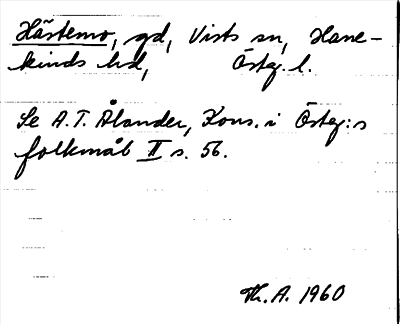 Hästemo, gd, Vists sn, Hane-
kinds hd, Östeg. l.
Se A.T. Ålander, Kons. i Östeg:s
folkmål II s. 56.
Th. A. 1960